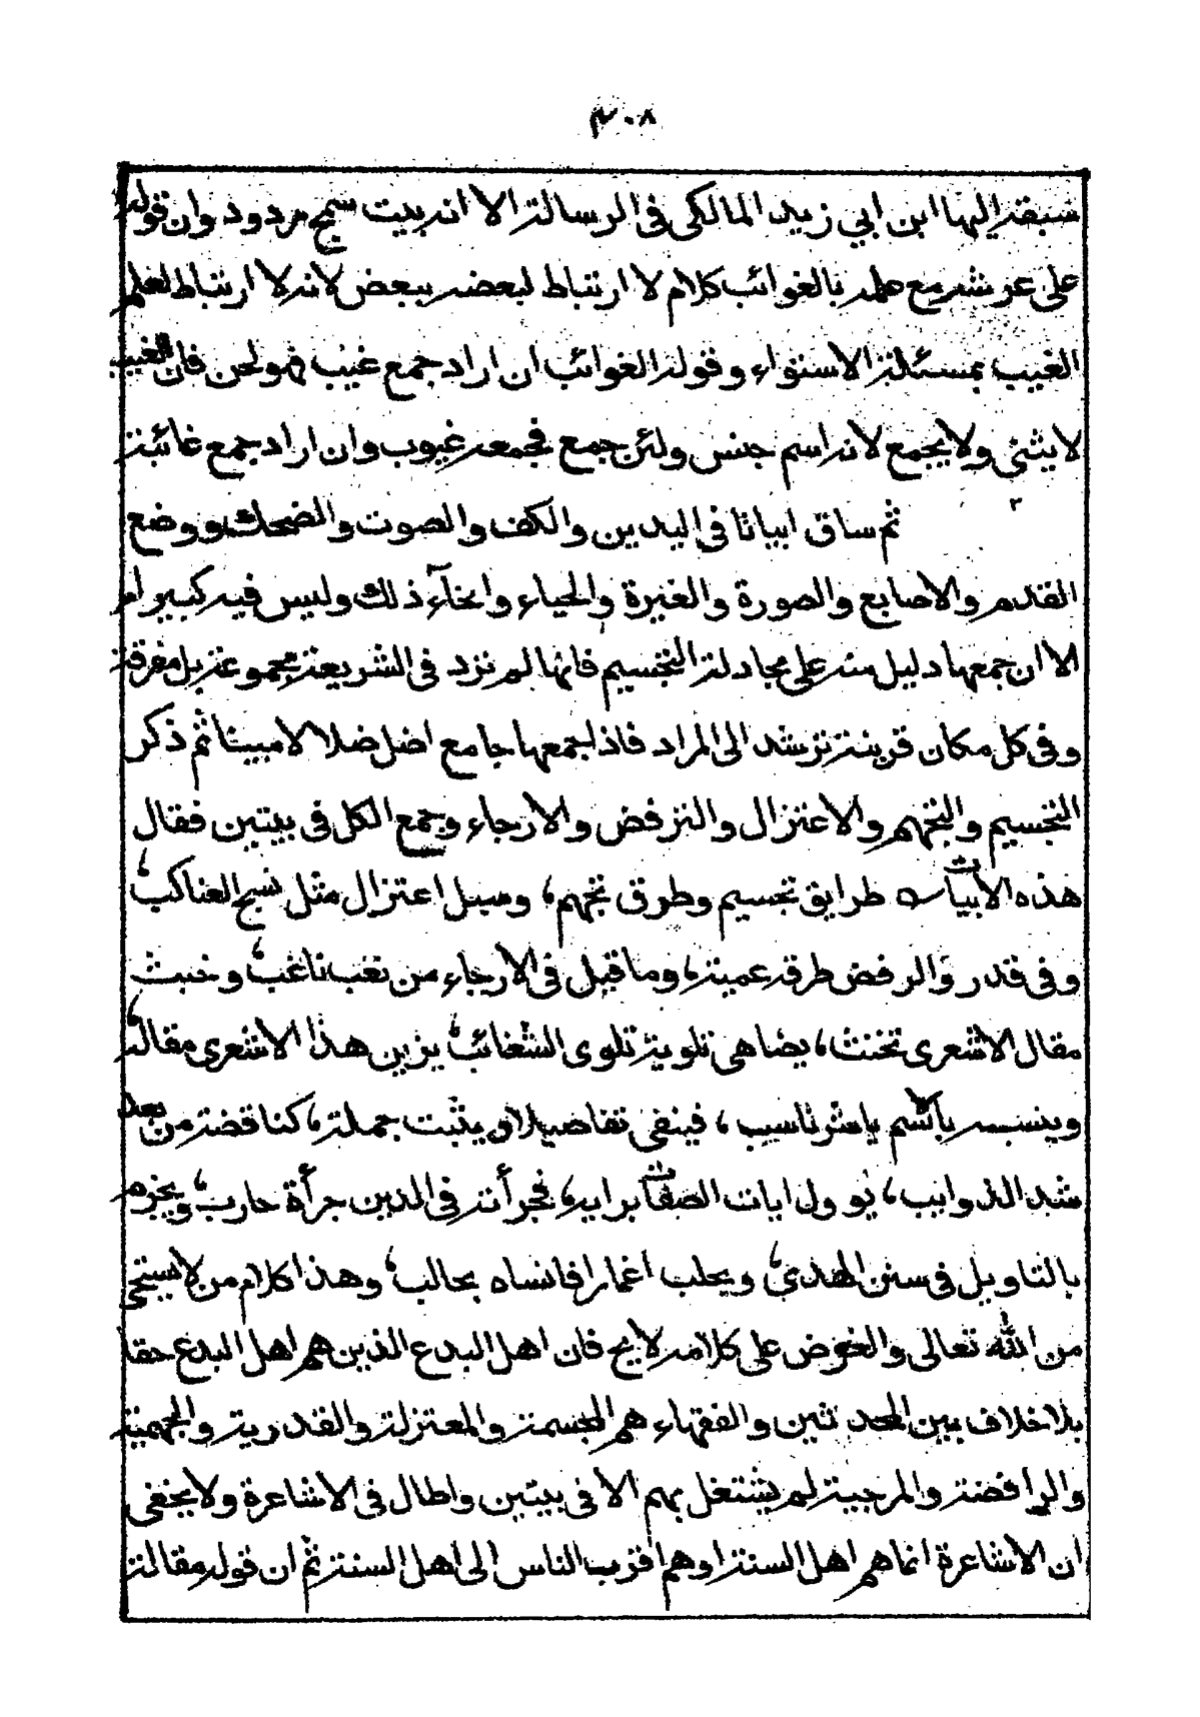 ٣٠٨
سبقه اليها ابن ابي زيد المالكى فى الرسالة الا انه بيت سمج مردود وان قوله
على عرشه مع علمه بالغوائب كلام لا ارتباط لبعضه ببعض لانه لا ارتباط لعلم
الغيب بمسئلة الاستواء وقوله الغوائب ان اراد جمع غيب فهو لحن فان الغيب
لا يثنى ولا يجمع لانه اسم جنس ولئن جمع فجمعه غيوب وان اراد جمع غائبة
٢
ثم ساق ابياتا فى اليدين والكف والصوت والضحك ووضع
القدم والاصابع والصورة والغيرة والحياء وانحاء ذلك وليس فيه كبير امر
الا ان جمعها دليل منه على مجادلة التجسيم فانها لم ترد فى الشريعة مجموعة بل مفرقة
وفى كل مكان قرينة ترشد الى المراد فاذا جمعها جامع اضل ضلالا مبينا ثم ذكر
التجسيم والتجهم والاعتزال والترفض والارجاء وجمع الكل فى بيتين فقال
هذه الابيات طرايق تجسيم وطرق تجهم، وسبل اعتزال مثل نسج العناكب،
وفى قدر والرفض طرق عمية، وما قيل فى الارجاء من نعب ناعب، وخبث
مقال الاشعرى تخنث، يضاهى تلويه تلوى الشغائب، يزين هذا الاشعرى مقاله،
وينسبه بالسم ناسب، فينفى تفاصيلا ويثبت جملة، كناقضة من بعد
شد الذوايب، يوول ايات الصفات برايه، فجرأته فى الدين جرأة حارب، ويجزم
بالتاويل فى سنن الهدى، ويحلب اغمارا فانساه بحالب، وهذا كلام من لا يستحى
من الله تعالى والغرض على كلامه لايح فان اهل البدع الذين هم اهل البدع حقا
بلا خلاف بين المحدثين والفقهاء هم المجسمة والمعتزلة والقدرية والجهمية
والرافضة والمرجية لم يشتغل بهم الا فى بيتين واطال فى الاشاعرة ولا يخفى
ان الاشاعرة انما هم اهل السنة او هم اقرب الناس الى اهل السنة ثم ان قوله مقالة